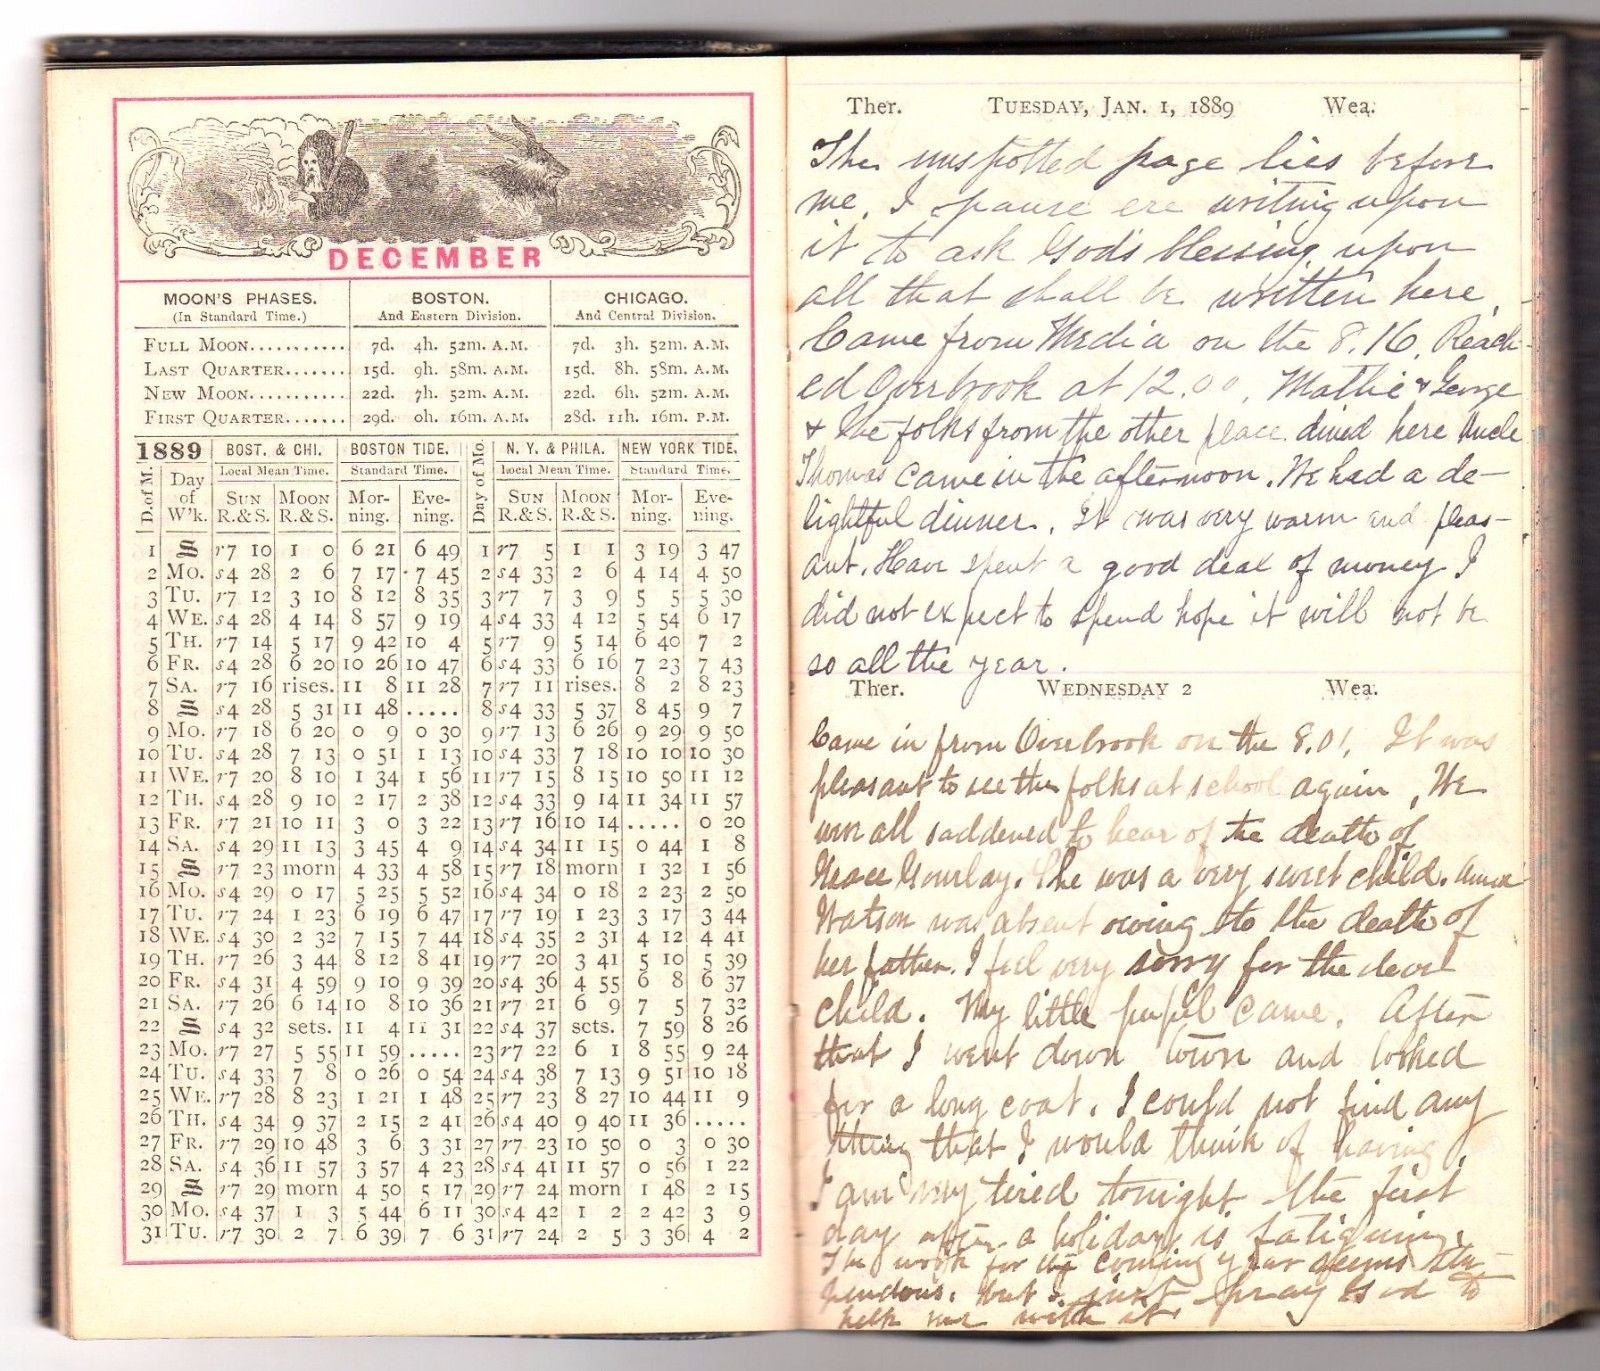 DECEMBER
MOON'S PHASES. (In Standard Time.) BOSTON. And Eastern Division. CHICAGO. And Central Division.
FULL MOON........... 7d. 4h. 52m. A.M. 7d. 3h. 52m. A.M.
LAST QUARTER....... 15d. 9h. 58m. A.M. 15d. 8h. 58m. A.M.
NEW MOON........... 22d. 7h. 52m. A.M. 22d. 6h. 52m. A.M.
FIRST QUARTER....... 29d. 0h. 16m. A.M. 28d. 11h. 16m. P.M.
1889 BOST. & CHI. BOSTON TIDE. N. Y. & PHILA. NEW YORK TIDE.
Local Mean Time. Standard Time. Local Mean Time. Standard Time.
D. of M. Day of W'k. SUN R.&S. MOON R.&S. Mor-ning. Eve-ning. Day of Mo SUN R.&S. MOON R.&S. Mor-ning. Eve-ning.
1 S r7 10 1 0 6 21 6 49 1 r7 5 1 1 3 19 3 47
2 MO. s4 28 2 6 7 17 7 45 2 s4 33 2 6 4 14 4 50
3 TU. r7 12 3 10 8 12 8 35 3 r7 7 3 9 5 5 5 30
4 WE. s4 28 4 14 8 57 9 19 4 s4 33 4 12 5 54 6 17
5 TH. r7 14 5 17 9 42 10 4 5 r7 9 5 14 6 40 7 2
6 FR. s4 28 6 20 10 26 10 47 6 s4 33 6 16 7 23 7 43
7 SA. r7 16 rises. 11 8 11 28 7 r7 11 rises. 8 2 8 23
8 S s4 28 5 31 11 48 ..... 8 s4 33 5 37 8 45 9 7
9 MO. r7 18 6 20 0 9 0 30 9 r7 13 6 26 9 29 9 50
10 TU. s4 28 7 13 0 51 1 13 10 s4 33 7 18 10 10 10 30
11 WE. r7 20 8 10 1 34 1 56 11 r7 15 8 15 10 50 11 12
12 TH. s4 28 9 10 2 17 2 38 12 s4 33 9 14 11 34 11 57
13 FR. r7 21 10 11 3 0 3 22 13 r7 16 10 14 ..... 0 20
14 SA. s4 29 11 13 3 45 4 9 14 s4 34 11 15 0 44 1 8
15 S r7 23 morn 4 33 4 58 15 r7 18 morn 1 32 1 56
16 MO. s4 29 0 17 5 25 5 52 16 s4 34 0 18 2 23 2 50
17 TU. r7 24 1 23 6 19 6 47 17 r7 19 1 23 3 17 3 44
18 WE. s4 30 2 32 7 15 7 44 18 s4 35 2 31 4 12 4 41
19 TH. r7 26 3 44 8 12 8 41 19 r7 20 3 41 5 10 5 39
20 FR. s4 31 4 59 9 10 9 39 20 s4 36 4 55 6 8 6 37
21 SA. r7 26 6 14 10 8 10 36 21 r7 21 6 9 7 5 7 32
22 S s4 32 sets. 11 4 11 31 22 s4 37 sets. 7 59 8 26
23 MO. r7 27 5 55 11 59 ..... 23 r7 22 6 1 8 55 9 24
24 TU. s4 33 7 8 0 26 0 54 24 s4 38 7 13 9 51 10 18
25 WE. r7 28 8 23 1 21 1 48 25 r7 23 8 27 10 44 11 9
26 TH. s4 34 9 37 2 15 2 41 26 s4 40 9 40 11 36 .....
27 FR. r7 29 10 48 3 6 3 31 27 r7 23 10 50 0 3 0 30
28 SA. s4 36 11 57 3 57 4 23 28 s4 41 11 57 0 56 1 22
29 S r7 29 morn 4 50 5 17 29 r7 24 morn 1 48 2 15
30 MO. s4 37 1 3 5 44 6 11 30 s4 42 1 2 2 42 3 9
31 TU. r7 30 2 7 6 39 7 6 31 r7 24 2 5 3 36 4 2
Ther. TUESDAY, JAN. 1, 1889 Wea.
The unspotted page lies before
me. I pause ere writing upon
it to ask God's blessing upon
all that shall be written here.
Came from Media on the 8.16. Reach-
ed Overbrook at 12.00. Mathie & George
& the folks from the other place dined here Uncle
Thomas came in the afternoon. We had a de-
lightful dinner. It was very warm and pleas-
ant. Have spent a good deal of money I
did not expect to spend hope it will not be
so all the year.
Ther. WEDNESDAY 2 Wea.
Came in from Overbrook on the 8.01. It was
pleasant to see the folks at school again. We
were all saddened to hear of the death of
Gourlay. She was a very sweet child. Anna
Watson was absent owing to the death of
her father. I feel very sorry for the dear
child. My little pupil came. After
that I went down town and looked
for a long coat. I could not find any
thing that I would think of having.
I am very tired tonight. The first
day after a holiday is fatiguing.
The work for the coming year seems stu-
pendous. but I just pray God to
help me with it.